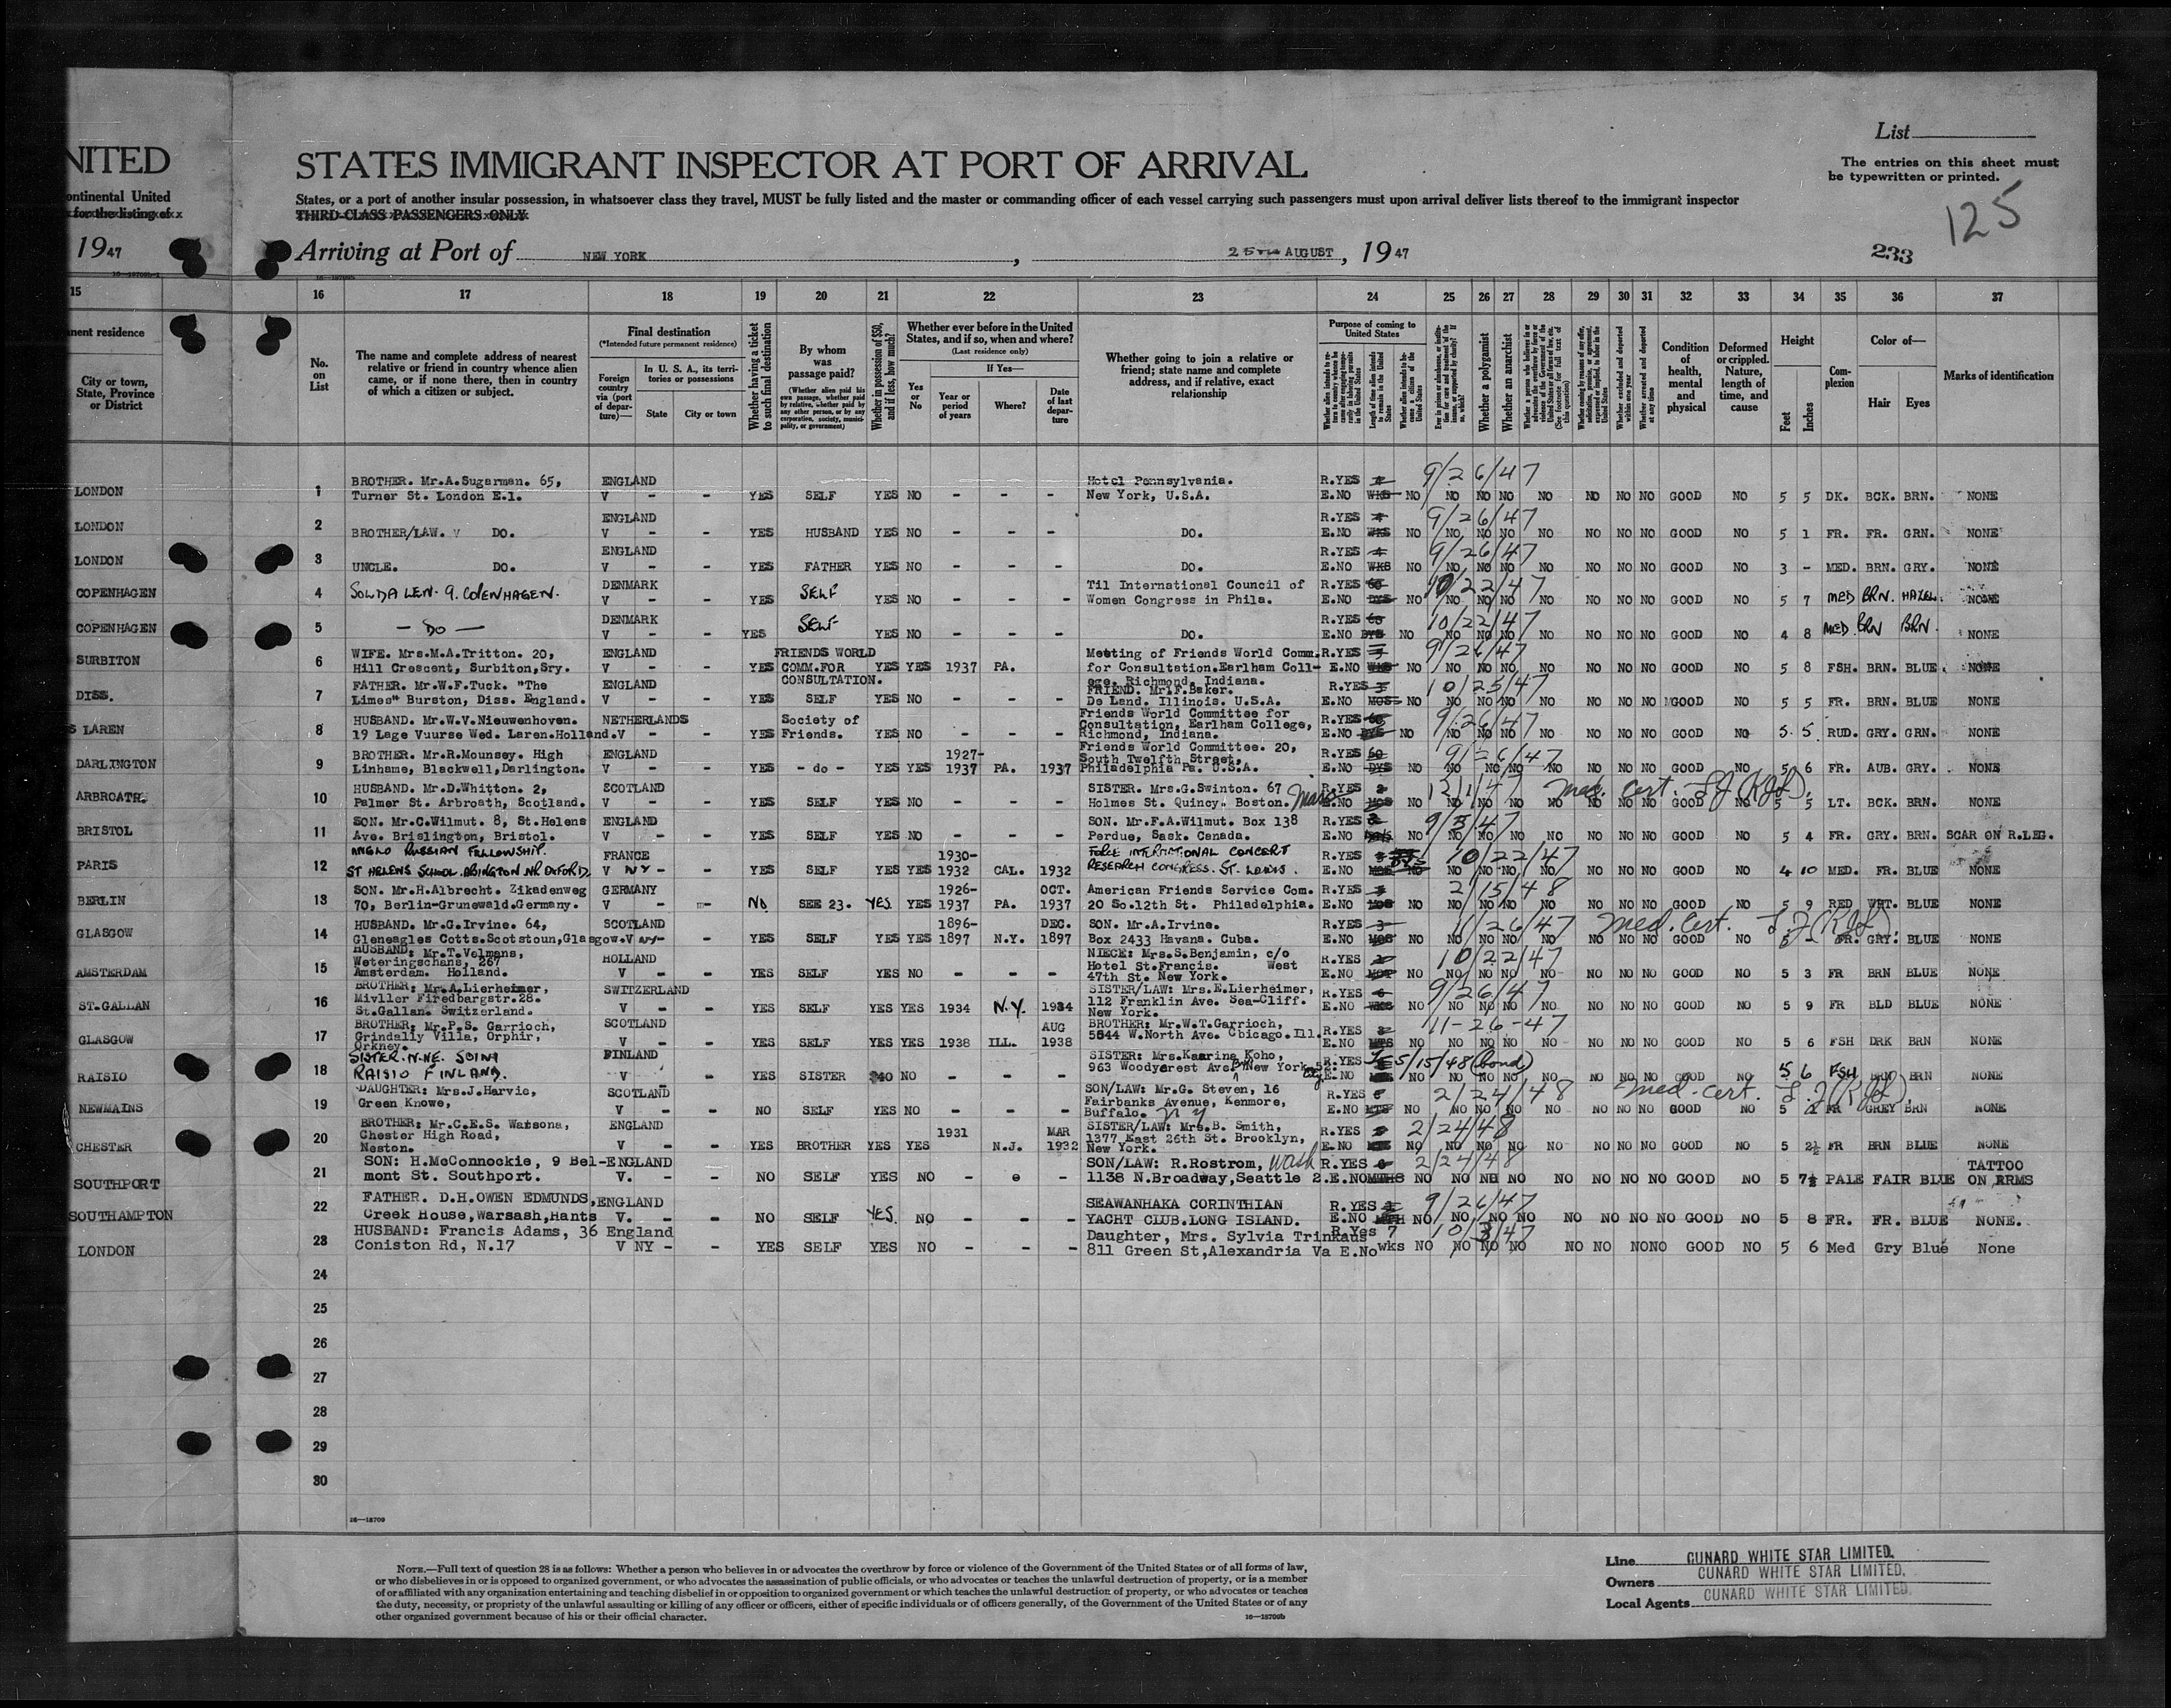 NITED
ontinental United
for the listing of
1947
List
STATES IMMIGRANT INSPECTOR AT PORT OF ARRIVAL
The entries on this sheet must
be typewritten or printed.
States, or a port of another insular possession, in whatsoever class they travel, MUST be fully listed and the master or commanding officer of each vessel carrying such passengers must upon arrival deliver lists thereof to the immigrant inspector
THIRD-CLASS PASSENGERS ONLY
125
Arriving at Port of NEW YORK, 25TH AUGUST, 1947
233
15 16 17 18 19 20 21 22 23 24 25 26 27 28 29 30 31 32 33 34 35 36 37
nent residence
City or town, State, Province or District
No. on List
The name and complete address of nearest relative or friend in country whence alien came, or if none there, then in country of which a citizen or subject.
Final destination
(*Intended future permanent residence)
Foreign country via (port of departure)—
In U. S. A., its territories or possessions
State
City or town
Whether having a ticket to such final destination
By whom was passage paid?
(Whether alien paid his own passage, whether paid by relative, whether paid by any other person, or by any corporation, society, municipality, or government)
Whether in possession of $50, and if less, how much?
Whether ever before in the United States, and if so, when and where?
(Last residence only)
If Yes—
Yes or No
Year or period of years
Where?
Date of last departure
Whether going to join a relative or friend; state name and complete address, and if relative, exact relationship
Purpose of coming to United States
Whether a polygamist
Whether an anarchist
Whether excluded and deported within one year
Whether arrested and deported at any time
Condition of health, mental and physical
Deformed or crippled. Nature, length of time, and cause
Height
Feet
Inches
Complexion
Color of—
Hair
Eyes
Marks of identification
9/26/47
LONDON 1 BROTHER. Mr.A.Sugarman. 65, ENGLAND Hotel Pennsylvania. R.YES
Turner St. London E.1. V - - YES SELF YES NO - - - New York, U.S.A. E.NO WKS NO NO NO NO NO NO NO NO GOOD NO 5 5 DK. BCK. BRN. NONE
LONDON 2 ENGLAND R.YES 9/26/47
BROTHER/LAW. DO. V - - YES HUSBAND YES NO - - - DO. E.NO WKS NO NO NO NO NO NO NO NO GOOD NO 5 1 FR. FR. GRN. NONE
LONDON 3 ENGLAND R.YES 9/26/47
UNCLE. DO. V - - YES FATHER YES NO - - - DO. E.NO WKS NO NO NO NO NO NO NO NO GOOD NO 3 - MED. BRN. GRY. NONE
COPENHAGEN 4 DENMARK Til International Council of R.YES 60 10/22/47
V - - YES SELF YES NO - - - Women Congress in Phila. E.NO DYS NO NO NO NO NO NO NO NO GOOD NO 5 7 MED BRN. HAZEL. NONE
COPENHAGEN 5 — DO — DENMARK R.YES 60 10/22/47
V - - YES SELF YES NO - - - DO. E.NO DYS NO NO NO NO NO NO NO NO GOOD NO 4 8 MED. BRN BRN. NONE
SURBITON 6 WIFE. Mrs.M.A.Tritton. 20, ENGLAND FRIENDS WORLD Meeting of Friends World Comm. R.YES 9/26/47
Hill Crescent, Surbiton,Sry. V - - YES COMM.FOR YES YES 1937 PA. for Consultation.Earlham Coll- E.NO WKS NO NO NO NO NO NO NO NO GOOD NO 5 8 FSH. BRN. BLUE. NONE
CONSULTATION. ege, Richmond, Indiana.
DISS. 7 FATHER. Mr.W.F.Tuck. "The ENGLAND FRIEND. Mr.F.Baker. R.YES 3 10/25/47
Limes" Burston, Diss. England. V - - YES SELF YES NO - - - De Land. Illinois. U.S.A. E.NO MOS NO NO NO NO NO NO NO NO GOOD NO 5 5 FR. BRN. BLUE NONE
S LAREN 8 HUSBAND. Mr.W.V.Nieuwenhoven. NETHERLANDS Society of Friends World Committee for R.YES 60 9/26/47
19 Lage Vuurse Wed. Laren.Holland. V - - YES Friends. YES NO - - - Consultation, Earlham College, E.NO DYS NO NO NO NO NO NO NO NO GOOD NO 5 5 RUD. GRY. GRN. NONE
Richmond, Indiana.
DARLINGTON 9 BROTHER. Mr.R.Mounsey. High ENGLAND 1927- Friends World Committee. 20, R.YES 60 9/26/47
Linhame, Blackwell,Darlington. V - - YES - do - YES YES 1937 PA. 1937 South Twelfth Street, E.NO DYS NO NO NO NO NO NO NO NO GOOD NO 5 6 FR. AUB. GRY. NONE
Philadelphia Pa. U.S.A.
ARBROATH. 10 HUSBAND. Mr.D.Whitton. 2, SCOTLAND SISTER. Mrs.G.Swinton. 67 R.YES med. cert.
Palmer St. Arbroath, Scotland. V - - YES SELF YES NO - - - Holmes St. Quincy. Boston. Mass E.NO MOS NO NO NO NO NO NO NO NO GOOD NO 5 5 LT. BCK. BRN. NONE
BRISTOL 11 SON. Mr.C.Wilmut. 8, St.Helens ENGLAND SON. Mr.F.A.Wilmut. Box 138 R.YES 9/5/47
Ave. Brislington, Bristol. V - - YES SELF YES NO - - - Perdue, Sask. Canada. E.NO NO NO NO NO NO NO NO NO GOOD NO 5 4 FR. GRY. BRN. SCAR ON R.LEG.
PARIS 12 ANGLO RUSSIAN FELLOWSHIP. FRANCE 1930- R.YES 10/22/47
ST HELENS SCHOOL. ABINGTON NR OXFORD V NY - - YES SELF YES YES 1932 CAL. 1932 RESEARCH CONGRESS. ST. LOUIS. E.NO NO NO NO NO NO NO NO NO GOOD NO 4 10 MED. FR. BLUE NONE
BERLIN 13 SON. Mr.H.Albrecht. Zikadenweg GERMANY 1926- OCT. American Friends Service Com. R.YES 2/15/48
70, Berlin-Grunewald.Germany. V - - NO SEE 23. YES. YES 1937 PA. 1937 20 So.12th St. Philadelphia. E.NO MOS NO NO NO NO NO NO NO NO GOOD NO 5 9 RED WHT. BLUE NONE
GLASGOW 14 HUSBAND. Mr.G.Irvine. 64, SCOTLAND 1896- DEC. SON. Mr.A.Irvine. R.YES 3 1/26/47 med. cert.
Gleneagles Cotts.Scotstoun,Glasgow. V NY - - YES SELF YES YES 1897 N.Y. 1897 Box 2433 Havana. Cuba. E.NO MOS NO NO NO NO NO NO NO NO GOOD NO 5 - FR. GRY. BLUE NONE
AMSTERDAM 15 HUSBAND: Mr.T.Velmans, HOLLAND NIECE: Mrs.S.Benjamin, c/o R.YES 10/22/47
Weteringschans, 267 Hotel St.Francis. West
Amsterdam. Holland. V - - YES SELF YES NO - - - 47th St. New York. E.NO NO NO NO NO NO NO NO NO GOOD NO 5 3 FR BRN BLUE NONE
ST.GALLAN 16 BROTHER: Mr.A.Lierheimer, SWITZERLAND SISTER/LAW: Mrs.E.Lierheimer, R.YES 6 9/26/47
Mivller Firedbargstr.28. 112 Franklin Ave. Sea-Cliff.
St.Gallan. Switzerland. V - - YES SELF YES YES 1934 N.Y. 1934 New York. E.NO WKS NO NO NO NO NO NO NO NO GOOD NO 5 9 FR BLD BLUE NONE
GLASGOW 17 BROTHER: Mr.P.S. Garrioch, SCOTLAND AUG BROTHER: Mr.W.T.Garrioch, R.YES 11-26-47
Grindally Villa, Orphir, V - - YES SELF YES YES 1938 ILL. 1938 5844 W.North Ave. Chicago.Ill. E.NO MTS NO NO NO NO NO NO NO NO GOOD NO 5 6 FSH DRK BRN NONE
Orkney.
RAISIO 18 FINLAND SISTER: Mrs.Kaarina Koho, R.YES 5/15/48 (bond)
RAISIO FINLAND. V - - YES SISTER $40 NO - - - 963 Woodycrest Ave. New York E.NO NO NO NO NO NO NO NO NO GOOD NO 5 6 FSH BRN BRN NONE
NEWMAINS 19 DAUGHTER: Mrs.J.Harvie, SCOTLAND SON/LAW: Mr.G. Steven, 16 R.YES 6 2/24/48 med. cert.
Green Knowe, V - - NO SELF YES NO - - - Fairbanks Avenue, Kenmore, E.NO MTS NO NO NO NO NO NO NO NO GOOD NO 5 FR GREY BRN NONE
Buffalo. N Y
CHESTER 20 BROTHER: Mr.C.E.S. Watsona, ENGLAND 1931 MAR SISTER/LAW: Mrs.B. Smith, R.YES 2/24/48
Chester High Road, V - - YES BROTHER YES YES N.J. 1932 1377 East 26th St. Brooklyn, E.NO NO NO NO NO NO NO NO NO GOOD NO 5 2½ FR BRN BLUE NONE
Neston. New York.
SOUTHPORT 21 SON: H.McConnockie, 9 Bel- ENGLAND SON/LAW: R.Rostrom, Wash R.YES 6 2/24/48 TATTOO
mont St. Southport. V. - - NO SELF YES NO - e - 1138 N.Broadway,Seattle 2. E.NO MTHS NO NO NO NO NO NO NO NO GOOD NO 5 7½ PALE FAIR BLUE ON ARMS
SOUTHAMPTON 22 FATHER. D.H.OWEN EDMUNDS, ENGLAND SEAWANHAKA CORINTHIAN R.YES 9/26/47
Creek House,Warsash,Hants V. - - NO SELF YES. NO - - - YACHT CLUB.LONG ISLAND. E.NO MTH NO NO NO NO NO NO NO NO GOOD NO 5 8 FR. FR. BLUE NONE.
LONDON 23 HUSBAND: Francis Adams, 36 England Daughter, Mrs. Sylvia Trinkaus R.Yes 7 10/3/47
Coniston Rd, N.17 V NY - - YES SELF YES NO - - - 811 Green St,Alexandria Va E.No wks NO NO NO NO NO NO NO NO NO GOOD NO 5 6 Med Gry Blue None
24
25
26
27
28
29
30
16—18709
NOTE.—Full text of question 28 is as follows: Whether a person who believes in or advocates the overthrow by force or violence of the Government of the United States or of all forms of law,
or who disbelieves in or is opposed to organized government, or who advocates the assassination of public officials, or who advocates or teaches the unlawful destruction of property, or is a member
of or affiliated with any organization entertaining and teaching disbelief in or opposition to organized government or which teaches the unlawful destruction of property, or who advocates or teaches
the duty, necessity, or propriety of the unlawful assaulting or killing of any officer or officers, either of specific individuals or of officers generally, of the Government of the United States or of any
other organized government because of his or their official character.
16—18709b
Line CUNARD WHITE STAR LIMITED.
Owners CUNARD WHITE STAR LIMITED.
Local Agents CUNARD WHITE STAR LIMITED.